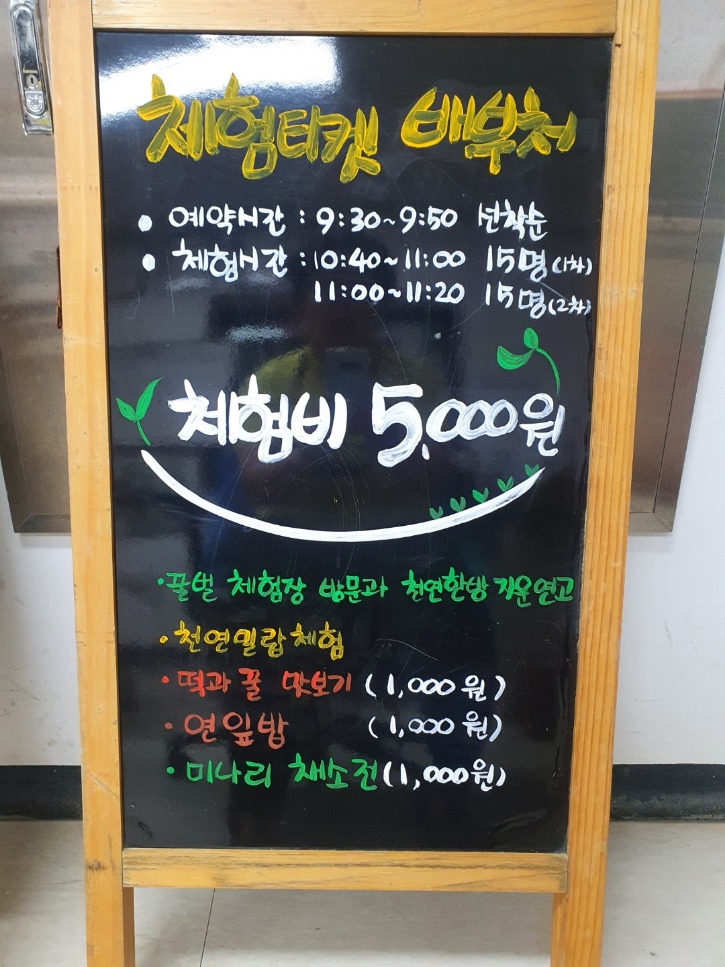 체험티켓 배부처
• 예약시간 : 9:30~9:50 선착순
• 체험시간 : 10:40~11:00 15명(1차)
11:00~11:20 15명(2차)
체험비 5,000원
• 꿀벌 체험장 방문과 천연한방 자운연고
• 천연밀랍체험
• 떡과 꿀 맛보기 (1,000원)
• 연잎밥 (1,000원)
• 미나리 채소전 (1,000원)